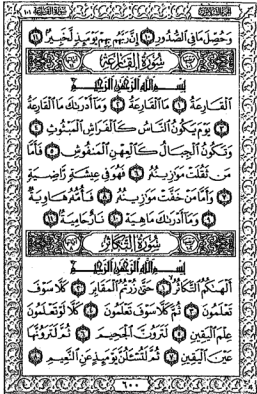 وَحُصِّلَ مَا فِي الصُّدُورِ ١٠ إِنَّ رَبَّهُم بِهِمْ يَوْمَئِذٍ لَّخَبِيرٌ ١١
سُورَةُ الْقَارِعَةِ
بِسْمِ اللَّهِ الرَّحْمَٰنِ الرَّحِيمِ
الْقَارِعَةُ ١ مَا الْقَارِعَةُ ٢ وَمَا أَدْرَاكَ مَا الْقَارِعَةُ
٣ يَوْمَ يَكُونُ النَّاسُ كَالْفَرَاشِ الْمَبْثُوثِ ٤
وَتَكُونُ الْجِبَالُ كَالْعِهْنِ الْمَنفُوشِ ٥ فَأَمَّا
مَن ثَقُلَتْ مَوَازِينُهُ ٦ فَهُوَ فِي عِيشَةٍ رَّاضِيَةٍ
٧ وَأَمَّا مَنْ خَفَّتْ مَوَازِينُهُ ٨ فَأُمُّهُ هَاوِيَةٌ
٩ وَمَا أَدْرَاكَ مَا هِيَهْ ١٠ نَارٌ حَامِيَةٌ ١١
سُورَةُ التَّكَاثُرِ
بِسْمِ اللَّهِ الرَّحْمَٰنِ الرَّحِيمِ
أَلْهَاكُمُ التَّكَاثُرُ ١ حَتَّىٰ زُرْتُمُ الْمَقَابِرَ ٢ كَلَّا سَوْفَ
تَعْلَمُونَ ٣ ثُمَّ كَلَّا سَوْفَ تَعْلَمُونَ ٤ كَلَّا لَوْ تَعْلَمُونَ
عِلْمَ الْيَقِينِ ٥ لَتَرَوُنَّ الْجَحِيمَ ٦ ثُمَّ لَتَرَوُنَّهَا
عَيْنَ الْيَقِينِ ٧ ثُمَّ لَتُسْأَلُنَّ يَوْمَئِذٍ عَنِ النَّعِيمِ ٨
٦٠٠